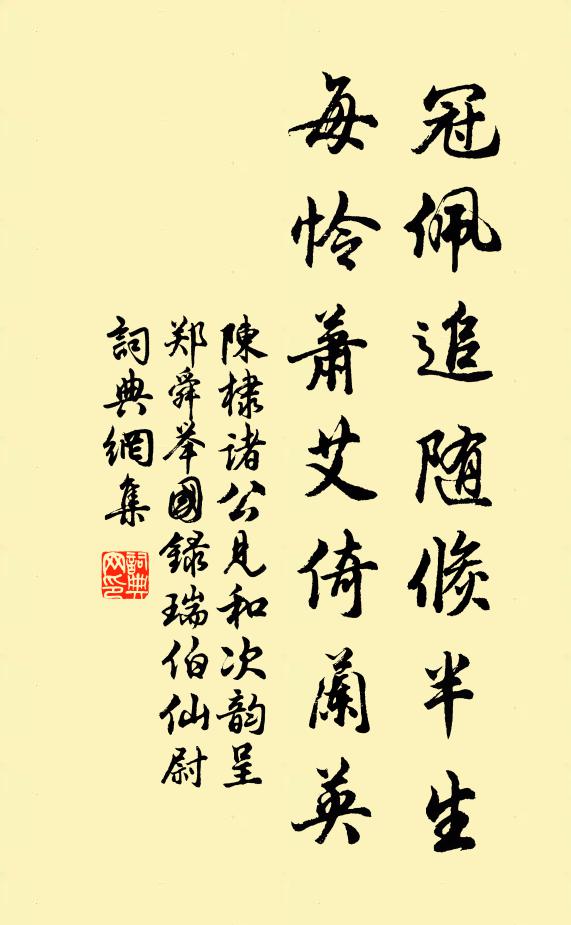 冠佩追随倐半生
每怜蕭艾倚蘭英
陳棣諸公見和次韵呈
郑舜举國録瑞伯仙尉
詞典網集
詞典网印